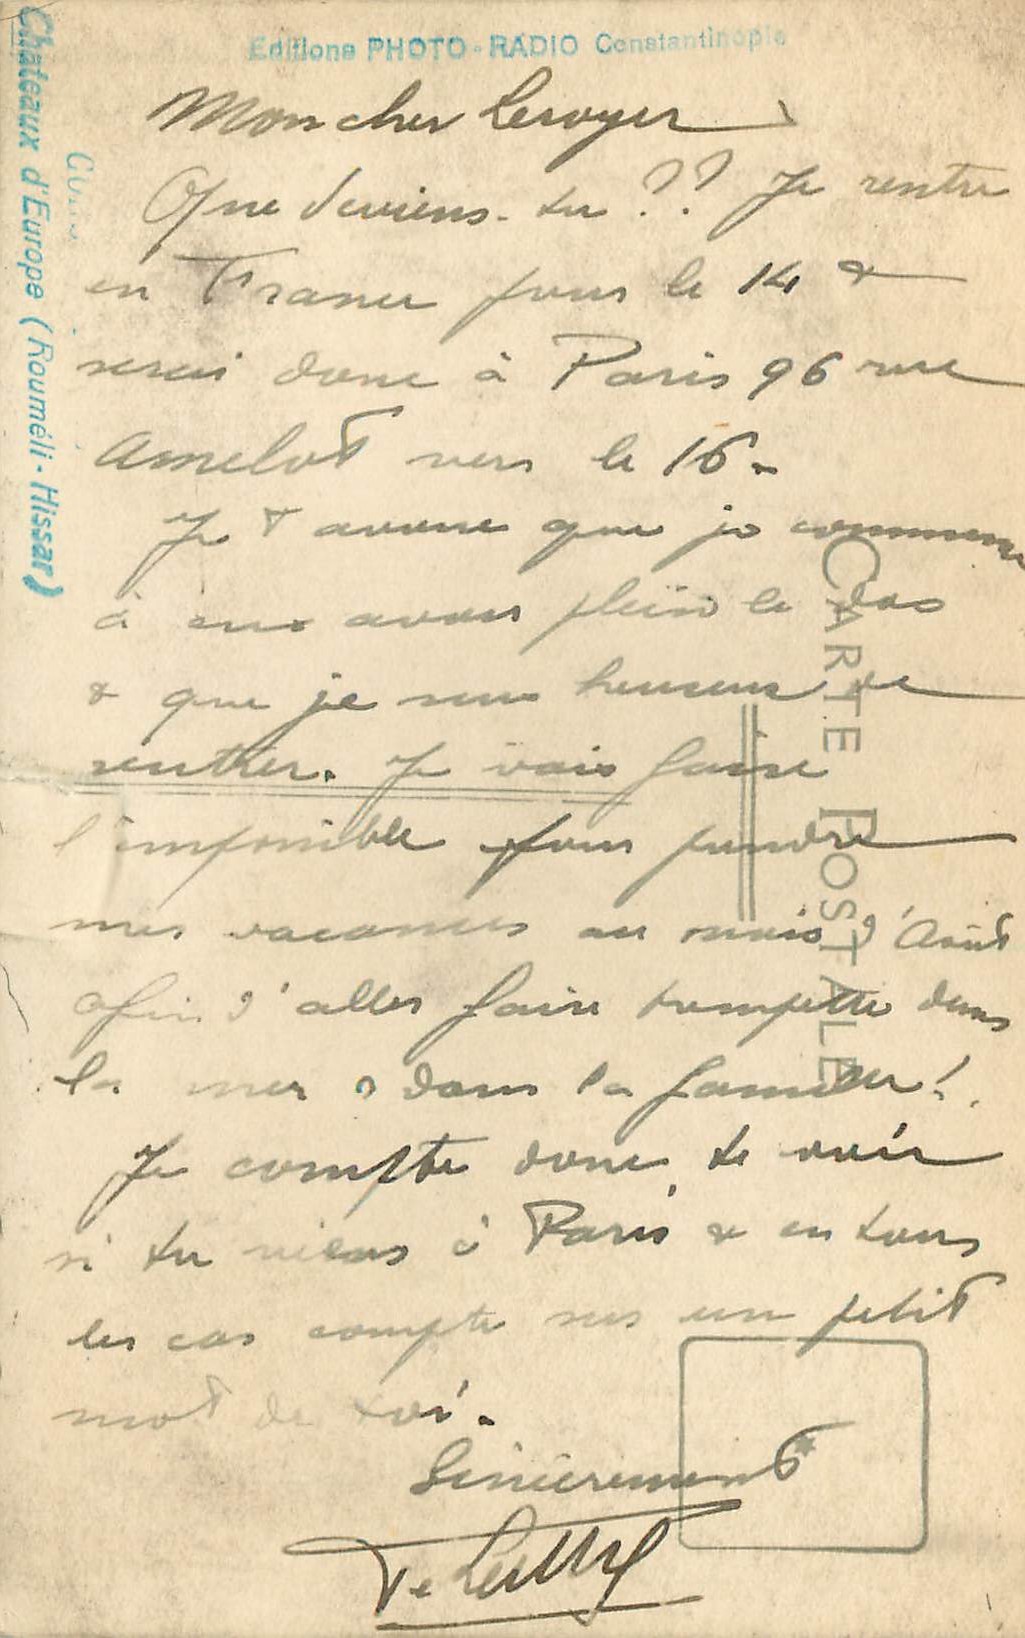 Editions PHOTO-RADIO Constantinople
Châteaux d'Europe (Rouméli-Hissar)
CARTE POSTALE
Mon cher Leroyer
Que deviens-tu ?? Je rentre
en France pour le 14 &
serai donc à Paris 96 rue
Amelot vers le 16.
Je t'avoue que je commence
à en avoir plein le dos
& que je suis heureux de
rentrer. Je vais faire
l'impossible pour prendre
mes vacances au mois d'Août
afin d'aller faire trempette dans
la mer & dans la
Je compte donc te voir
si tu viens à Paris & en tous
les cas compte sur un petit
mot de toi.
Sincèrement